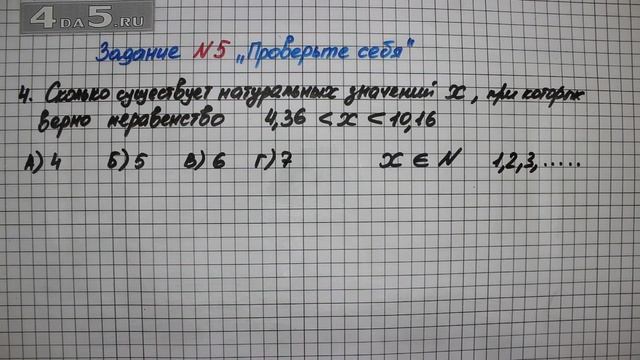 4DA5.RU
Задание №5 „Проверьте себя"
4. Сколько существует натуральных значений x, при которых
верно неравенство 4,36 < x < 10,16
А) 4 Б) 5 В) 6 Г) 7 x ∈ N 1,2,3,.....